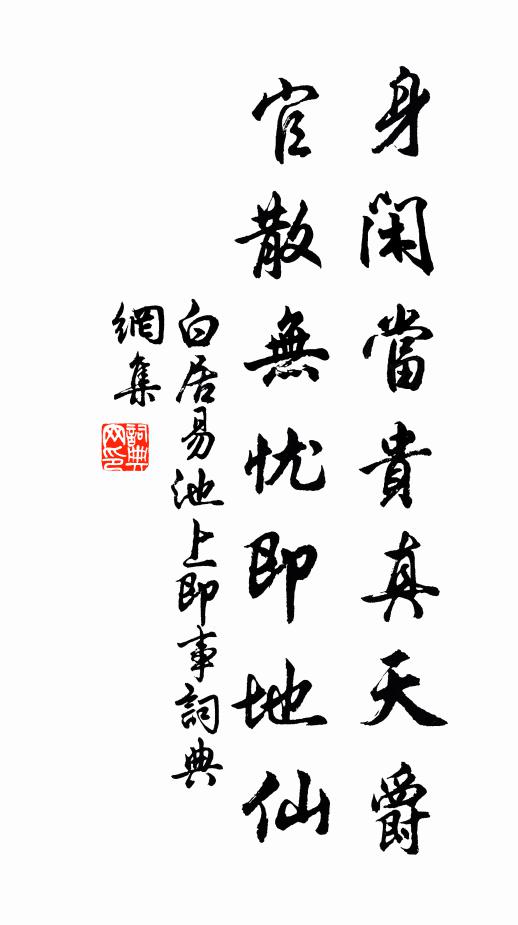 身閑當貴真天爵
官散無忧即地仙
白居易池上即事詞典
網集
詞典
网印